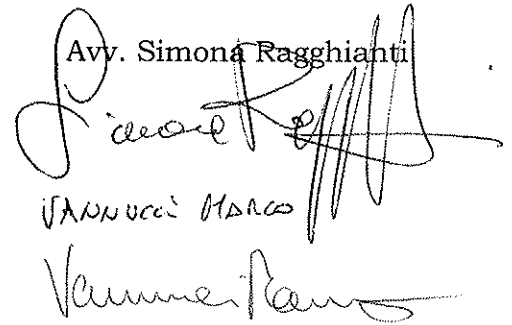 Avv. Simona Ragghianti
Simona Ragghianti
VANNUCCI MARCO
Vannucci Marco